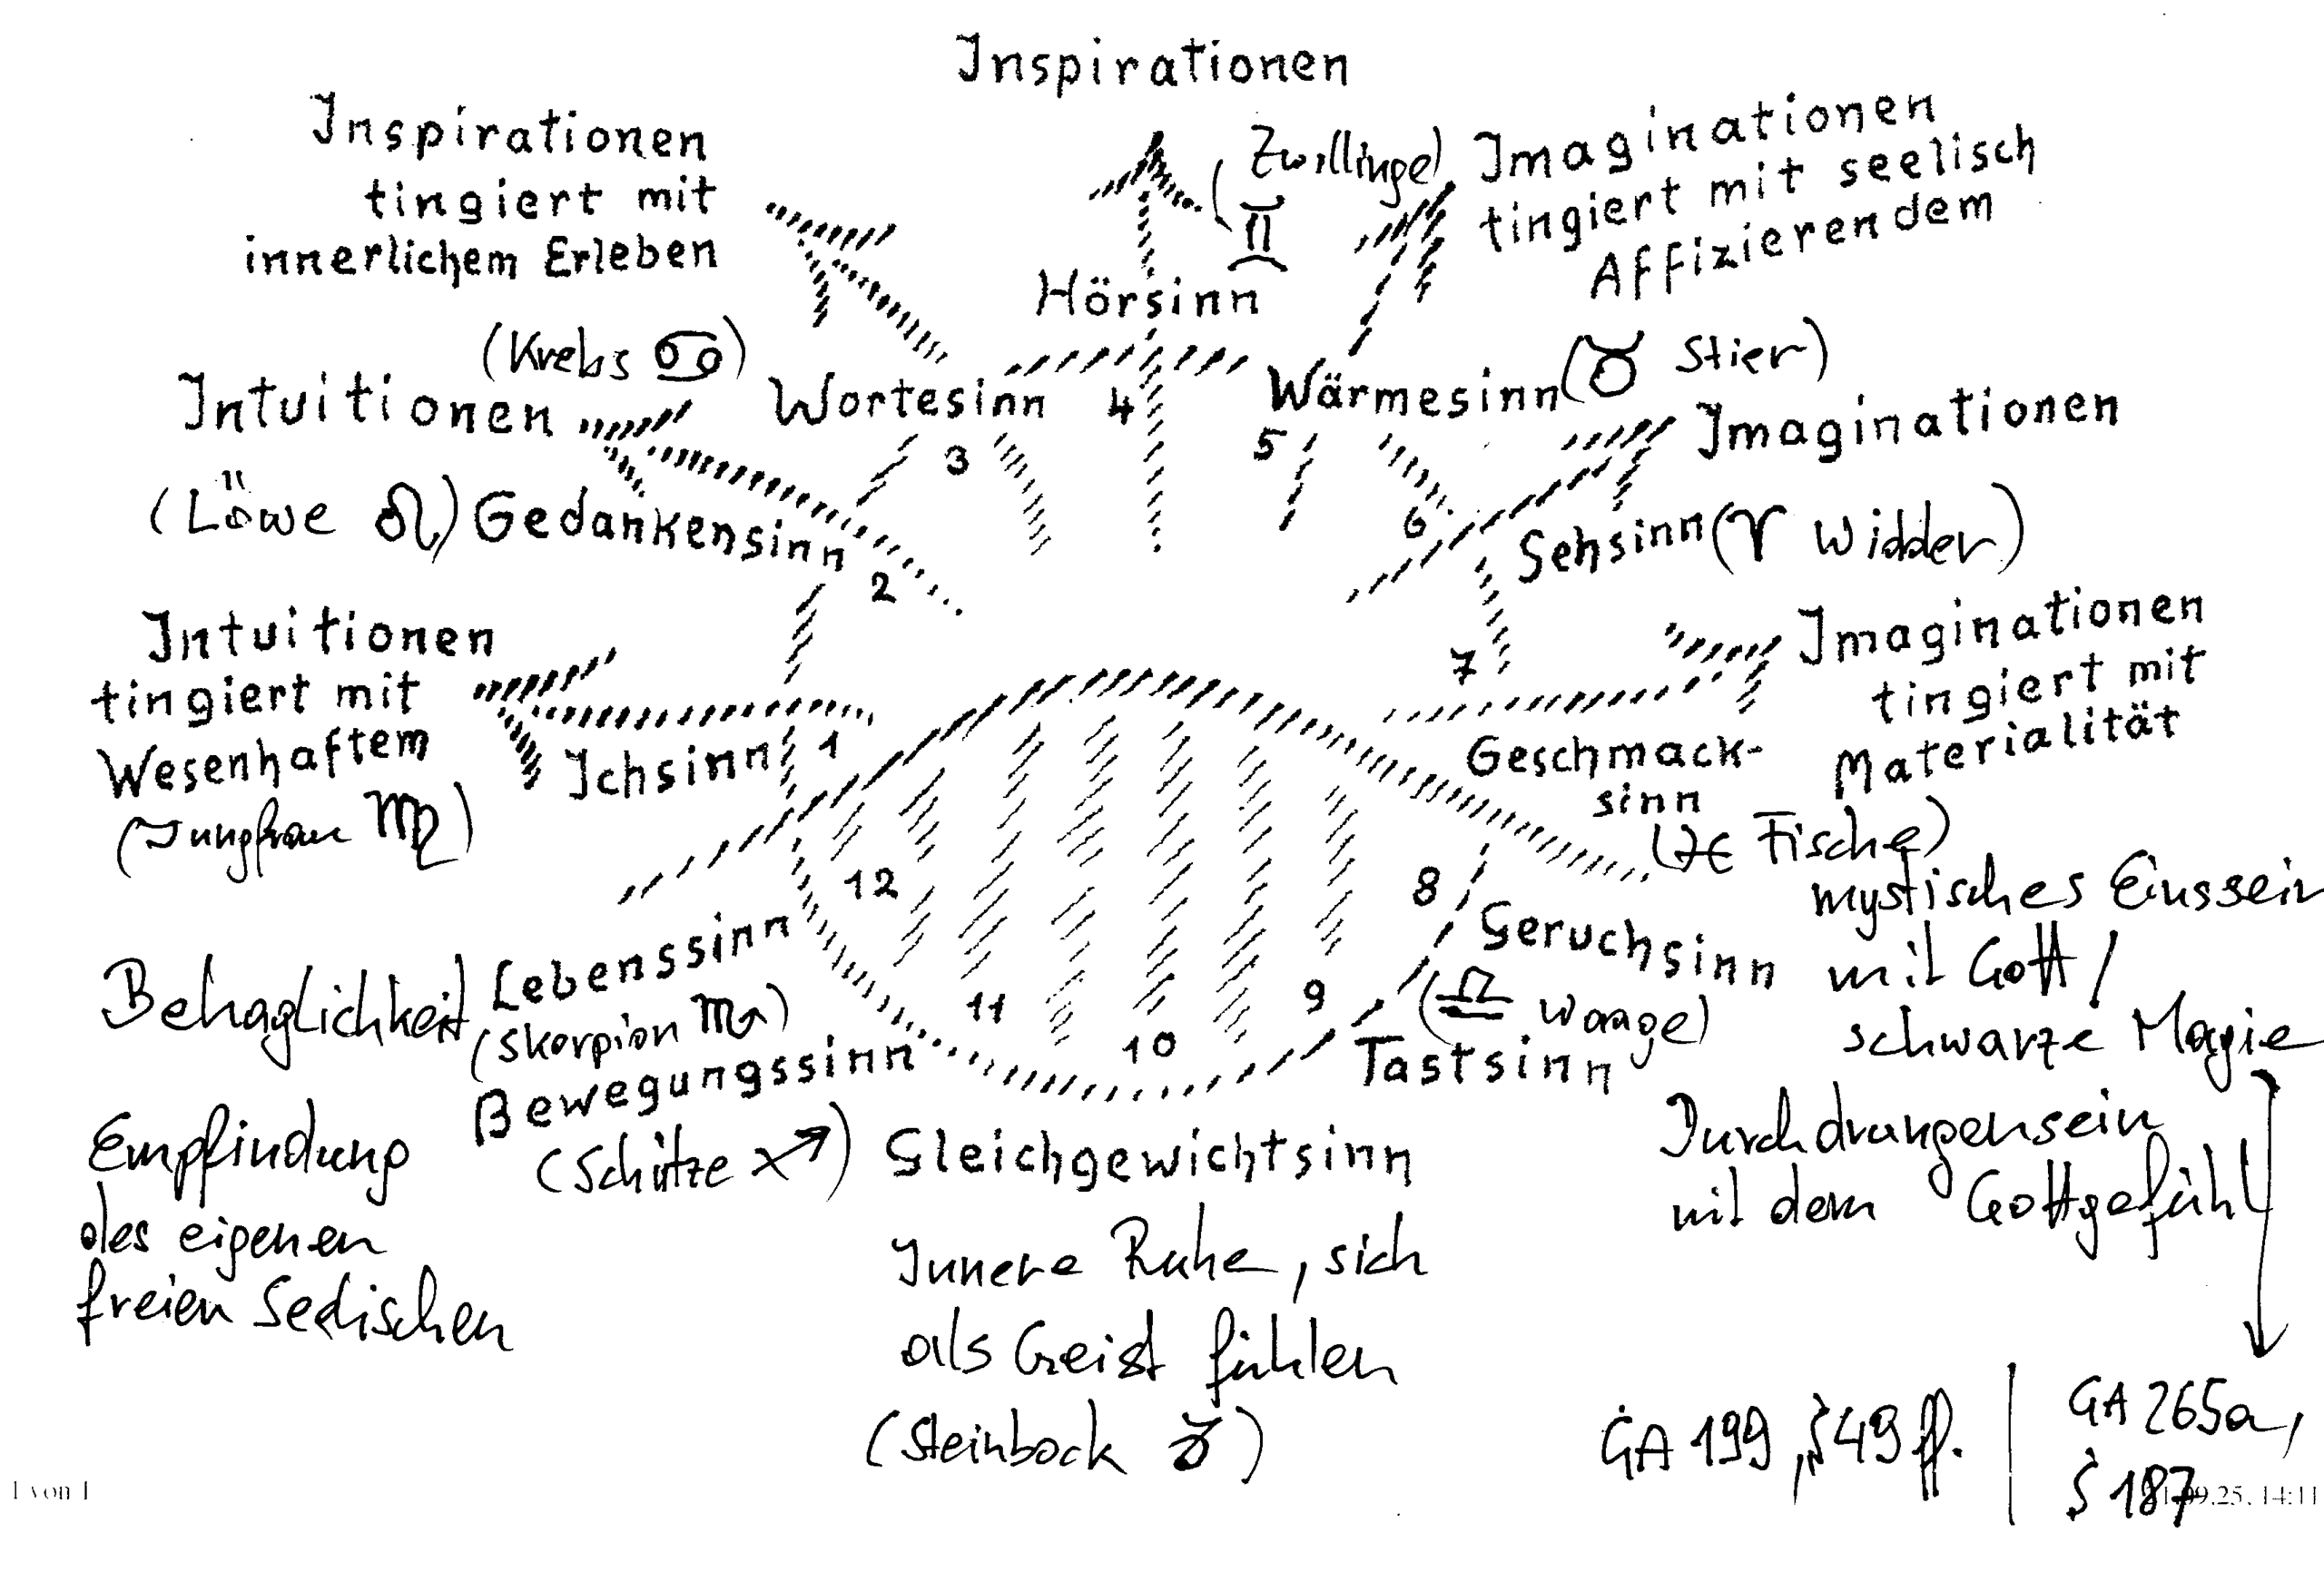 Inspirationen
Inspirationen
tingiert mit
innerlichem Erleben
(Zwillinge)
♊
Imaginationen
tingiert mit seelisch
Affizierendem
Hörsinn
(Krebs ♋)
Wortesinn
4
Wärmesinn (♉ Stier)
Intuitionen
3
5
Imaginationen
(Löwe ♌) Gedankensinn
2
6
Sehsinn (♈ Widder)
Intuitionen
tingiert mit
Wesenhaftem
(Jungfrau ♍)
Ichsinn 1
7
Imaginationen
tingiert mit
Materialität
Geschmack-
sinn
(♓ Fische)
12
8
mystisches Einssein
mit Gott /
schwarze Magie
Geruchsinn
(♎ Waage)
Behaglichkeit
Lebenssinn
(Skorpion ♏)
11
10
9
Tastsinn
Bewegungssinn
(Schütze ♐)
Empfindung
des eigenen
freien Seelischen
Gleichgewichtsinn
Innere Ruhe, sich
als Geist fühlen
(Steinbock ♑)
Durchdrungensein
mit dem Gottgefühl
GA 199, S 49 ff.
GA 265a,
S 187
1 von 1
.09.25, 14:11